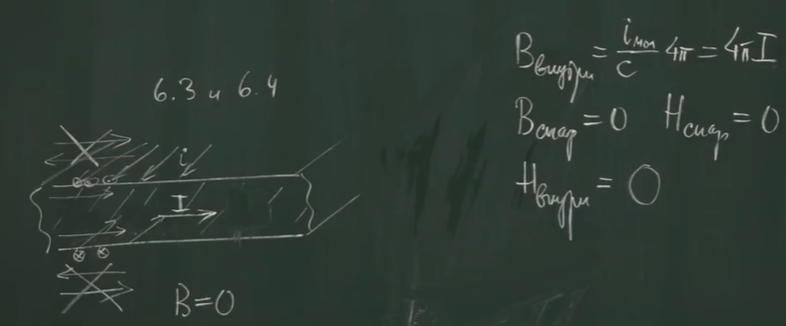 6.3 и 6.4
i
I
B=0
Bвнутри = iмол/c 4π = 4πI
Bснар = 0 Hснар = 0
Hвнутри = 0